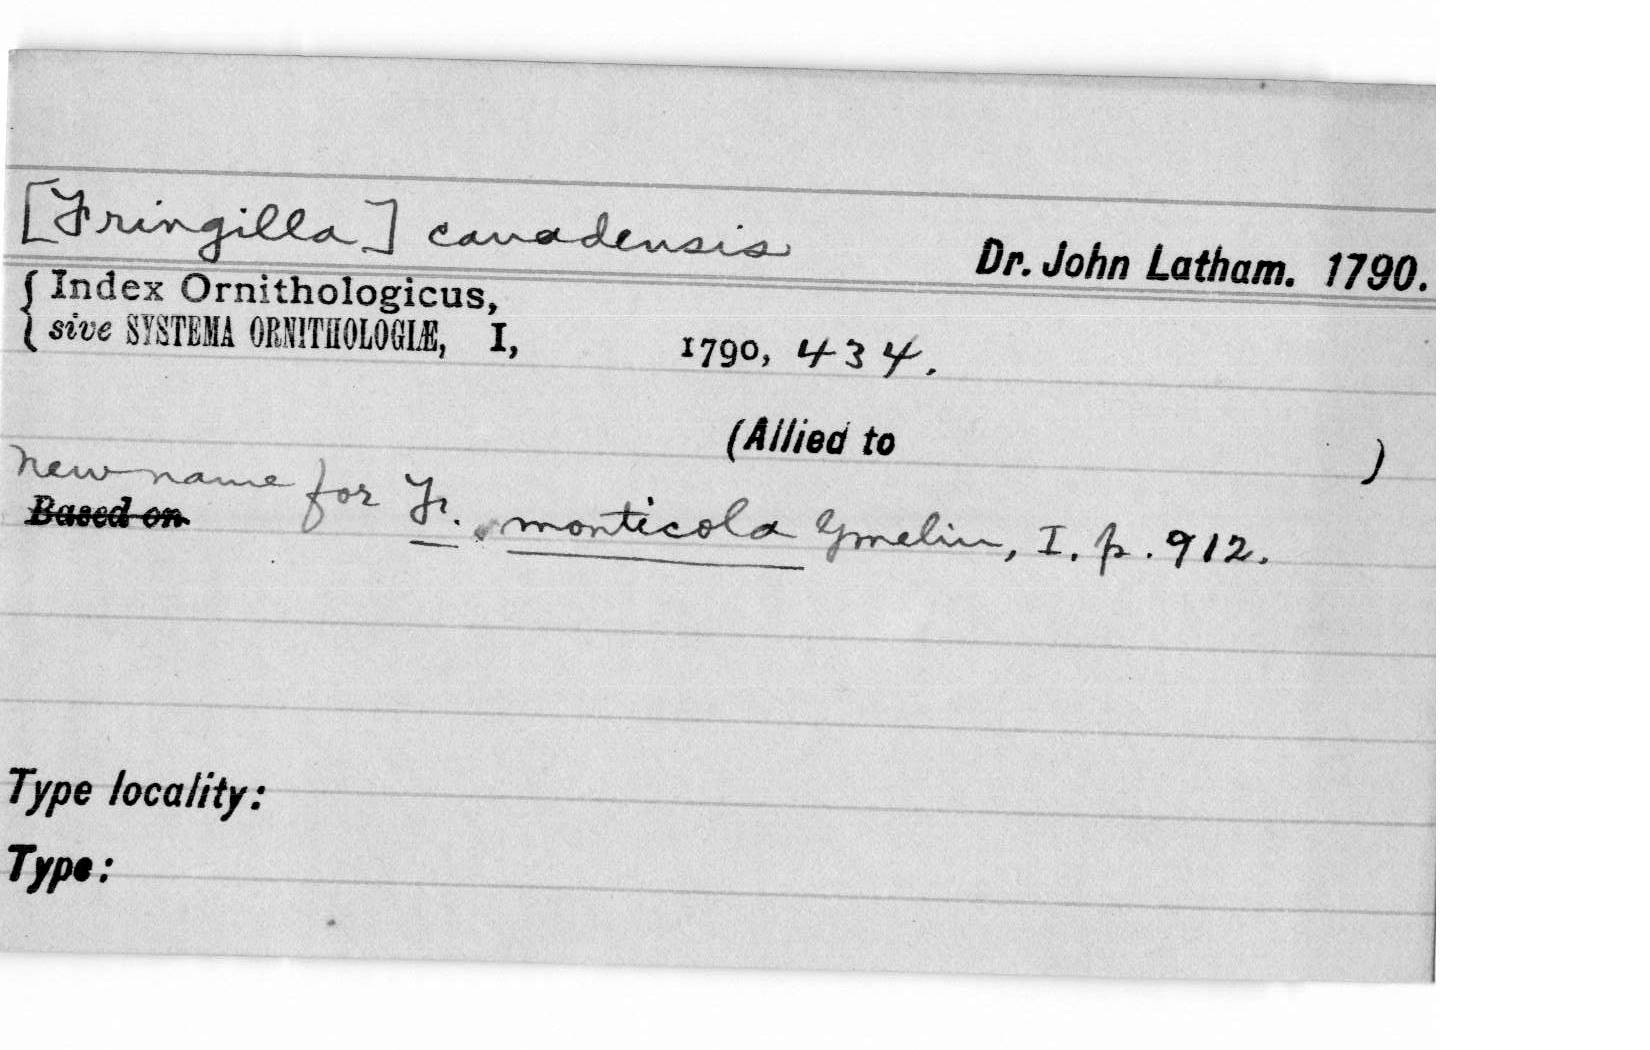 [Fringilla] canadensis Dr. John Latham. 1790.
Index Ornithologicus,
sive SYSTEMA ORNITHOLOGIÆ, I, 1790, 434.
(Allied to )
new name for Fr. monticola Gmelin, I. p. 912.
Based on
Type locality:
Type: